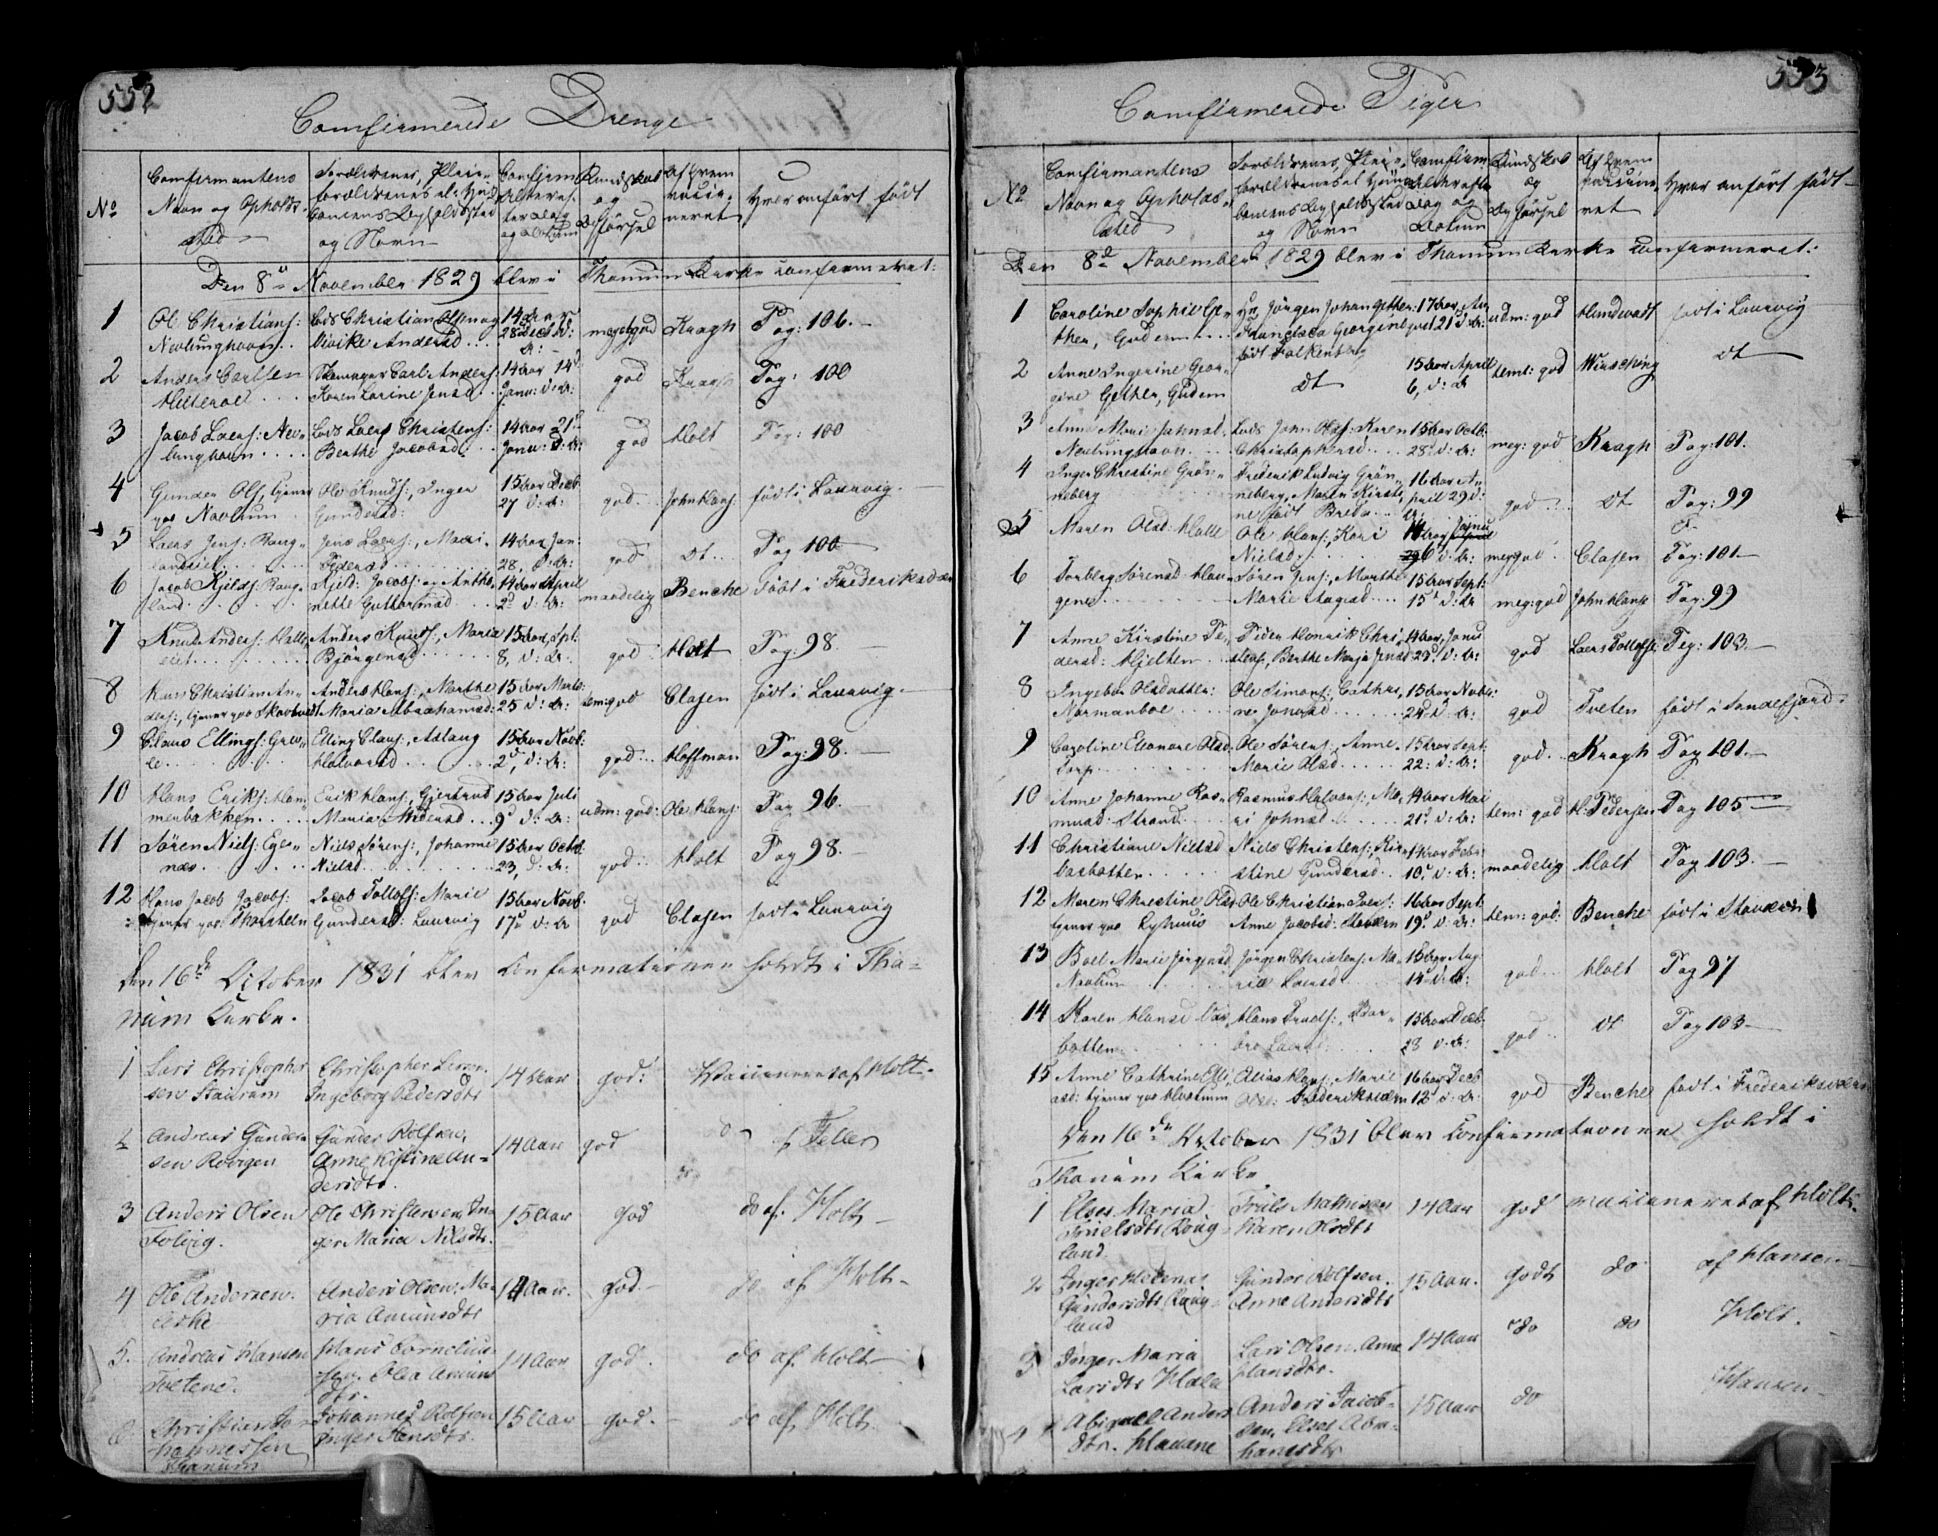 552
Comfirmerede Drenge
No
Comfirmantens Navn og Opholds Sted
Forældrenes, Pleieforældrenes el: Huusbondens Opholdssted og Navn
Hvor anført født
Den 8de November 1829 blev i Thanum Kirke confirmeret:
1 Ol: Christians: Nevlunghavn. Lods Christian Olsen og 14 28 Decb: d: A: meget god Kragh Pag: 106.
2 Anders Carlsen Helleroe Carl Anders: Karen Lorine Jensd. 14 aar 14d Janu: d: A: god Kragh Pag: 100
3 Jacob Laers: Nevlunghavn Lods Laers Christens: Berthe Jacobsd. 14 aar 21d Janu: d: A: god Holt Pag: 100
4 Gunder Ols, tjener hos Navlum Ole Knuds:, Inger Gundersd: 15 aar Decb 27 d: A: god John Hans: født i Laurvig.
5 Laers Jens: Roug- Jens Laers:, Mari Pedersd 14 aar Jan: 28, d: A: god dt Pag 100
6 Jacob Kjelds: Rougland Kjeld: Jacobs: Anthonette Guttormsd 14 aar April 2d d: A: maadelig Benche Født i Frederiksværn
7 Knud Anders: Halle Anders Knuds:, Maria Bjørgensd 15 aar, Spt: 8, d: A: god Holt Pag: 98.
8 Hans Christian Anders:, tjener hos Anders Hans:, Marthe Maria Abrahamsd: 15 aar Marts 25 d: A: tem: god Clasen født i Laurvig.
9 Claus Ellings: Elling Claus:, Aslaug Halvorsd 15 aar Novb: 2d, d: A: god Hoffman Pag: 98.
10 Hans Eriks: Hammenbakken Erik Hans:, Gjertrud Maria Andersd 15 aar Juli 9d d: A: udm: god: Ole Hans: Pag 96.
11 Søren Niels: Egenæs Niels Sørens:, Johanne Nielsd 15 aar Octob: 23, d: A: god Holt Pag 98.
12 Hans Jacob Jacobs: tjener hos: Thorsteen Jacob Tollofs: Marie Gundersd: Laurvig 15 aar Novb. 17d d: A: god Clasen født i Laurvig
Den 16de October 1831 blev Confirmationen holdt i Thanum Kirke.
1 Lars Christophersen Stavrum Christopher Larsen. Ingeborg Pedersdtr 14 Aar god: Vaccineret af Holt.
2 Andreas Gundersen Rovigen Gunder Rolfsen, Anne Kistine Andersdtr. 14 Aar god do f Feller
do
3 Anders Olsen Folvig. Ole Christensen Inger Maria Nilsdtr. 15 Aar god do af. Holt
4 Ole Andersen. Aske Anders Olsen. Maria Amundsdtr 14 Aar. god. do af Holt
5. Andreas Hansen Tvetene. Hans Corneliussen. Olea Amundsdtr. 14 Aar god. do af Holt
6 Christian Johannessen Thanum Johannes Rolfsen Inger Hansdtr. 15 Aar god. do af Holt
553
Comfirmerede Piger
No
Comfirmandens Navn og Opholds Sted
Forældrenes, Pleieforældrenes el Huusbondens Opholdssted og Navn
Kundskab og Opførsel
Hvor anført født
Den 8de November 1829 blev i Thanum Kirke confirmeret:
1 Caroline Sophie Gether, Gudem Hr. Jørgen Johan Gether: Francisca Georgine født Falkenberg 17 aar Au- gust 21d d: A: udm: god Hundevadt født i Laurvig
2 Anne Ingerine Georgine Gether, Gudem Dt 15 aar April 6, d: A teml: god Winsching dt
3 Anne Mari Johnsd. Nevlunghavn Lods John Ols: Karen Christophersd. 15 aar Octb: 28d d: A: meg: god Kragh Pag: 101.
4 Inger Christine Grønneberg Frederik Ludvig Grønneberg, Maren Kirstine født Breda 16 aar April 29 d: A: god dt Pag: 99
5 Maren Olsd: Halle Ole Hans:, Kari Nielsd. 14 aar Janu 6 d: A: meg god Clasen Pag: 101.
6 Torberg Sørensd Haugene Søren Jens:, Marthe Marie Aagesd 15 aar Sept: 15d d: A meg: god John Hanse Pag: 99
7 Anne Kirstine Pedersd: Hjelten Peder Henrik Christens:, Berthe Marja Jensd 14 aar, Janu 29d d: A: god Laers Tollofse Pag: 103.
8 Ingebor Olsdatter: Normanboe Ole Simons: Cathrine Jonasd 15 aar Novb: 24d d: A: god Tveten født i Sandefjord.
9 Caroline Eleonore Olsd Torp Ole Sørens:, Anne Marie Olsd 15 aar Sept: 22: d: A: god Kragh Pag 101.
10 Anne Johanne Rasmusd: Strand Rasmus Halvors:, Mari Johnsd. 14 aar Mai 21d d: A: tem: god H: Pedersen Pag 105
11 Christiane Nielsd Vasbotten Niels Christens:, Kirstine Gundersd 14 aar Febr: 10, d: A: maadelig Holt Pag 103.
12 Maren Christine Olsd tjener hos Lyshuus Ole Christian Poels: Anne Jacobsd: Stavern 16 aar Sept 19d d: A: tem: god: Benche født i Stavern
13 Boel Marie Jørgensd Navlum Jørgen Christens: Maria Laersd 15 aar Aug: 14d d: A: god Holt Pag 97
14 Karen Hansd Vasbotten Hans Truels:, Barbro Laersd 15 aar Decb. 28 d: A: god dt Pag 103
15 Anne Cathrine Eliasd: tjener hos Elias Hans:, Marie Olsd: Frederiksværn 16 aar Decb 12d d: A: god Benche født i Frederiksværn
Den 16de October 1831 blev Confirmationen holdt i Thanum Kirke
1 Else Maria Truelsdtr Rougland. Truls Mathisen Karen Olsdtr 14 Aar god Vaccineret af Holt.
2 Inger Helena Gundersdtr Rougland Gunder Rolfsen. Anne Andersdtr 15 Aar. godt do af Hansen
3 Inger Maria Larsdtr Hale Lars Olsen. Anne Hansdtr. 14 Aar do do Holt.
4 Abigael Andersdtr. Haaane Anders Jacobsen, Else Abrahamsdtr 15 Aar do Hansen